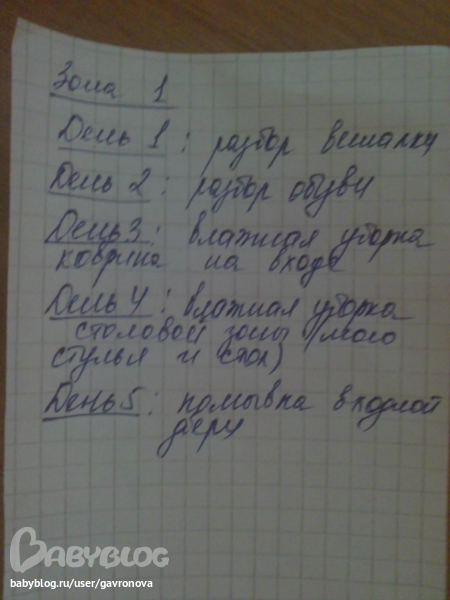 Зона 1
День 1: разбор вешалки
День 2: разбор обуви
День 3: влажная уборка
коврика на входе
День 4: влажная уборка
столовой зоны (мою
стулья и стол)
День 5: помывка входной
двери
BABYBLOG
babyblog.ru/user/gavronova